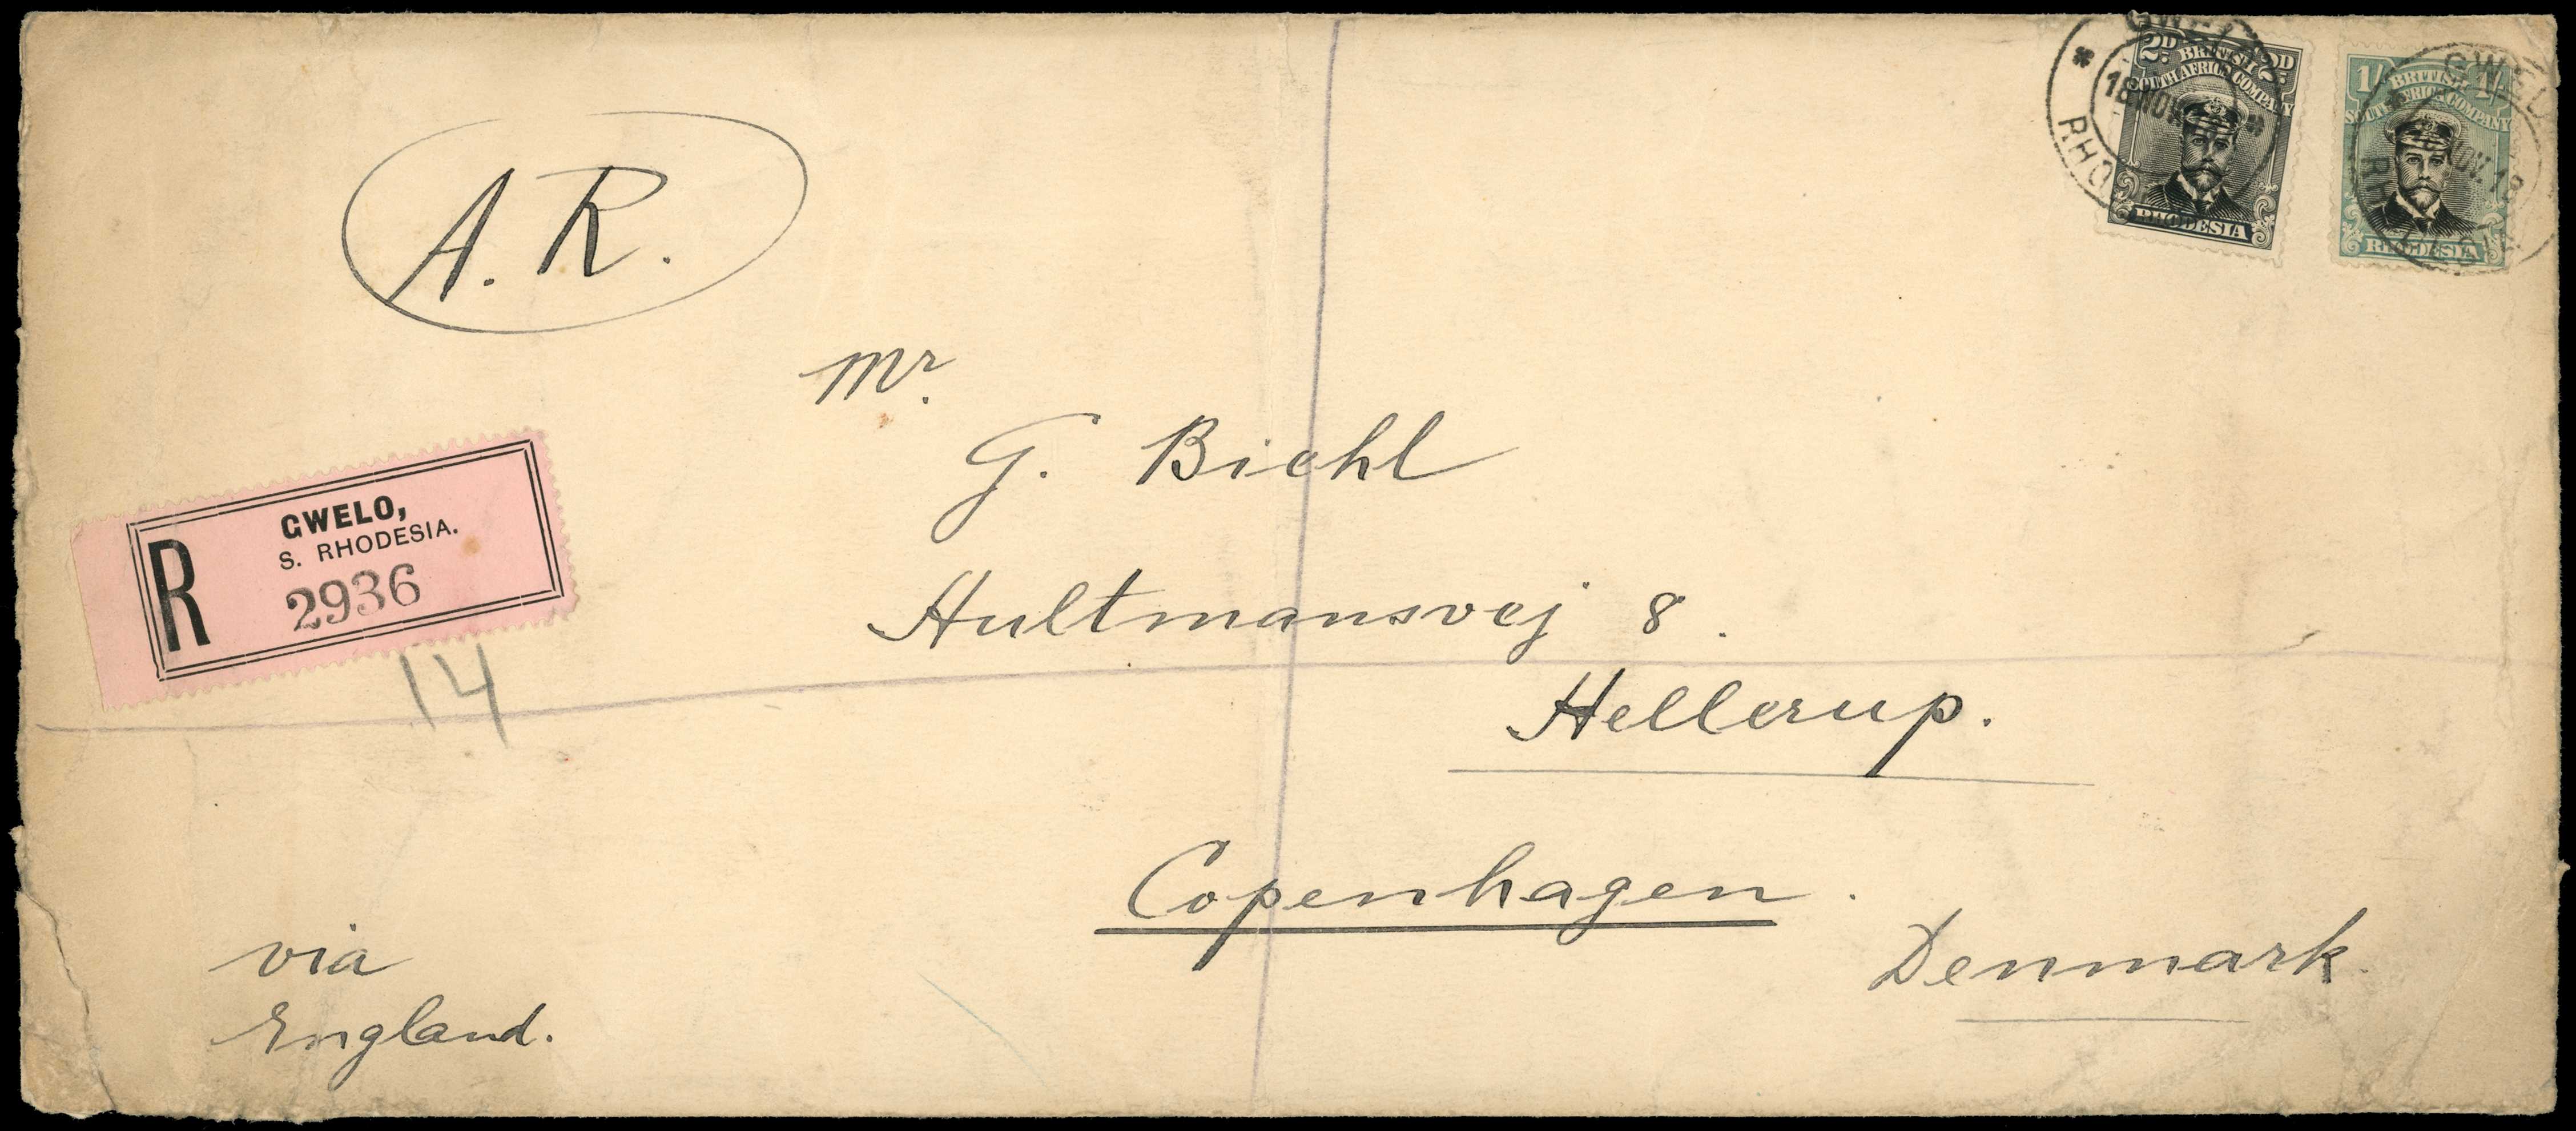 A. R.
GWELO
18 NOV
RHO
2D. BRITISH 2D.
SOUTH AFRICA COMPANY
RHODESIA
GWELO
NOV. 18
1/- BRITISH 1/-
SOUTH AFRICA COMPANY
RHODESIA
Mr.
G. Biehl
Hultmansvej 8.
Hellerup.
Copenhagen.
Denmark.
R
GWELO,
S. RHODESIA.
2936
14
via
England.